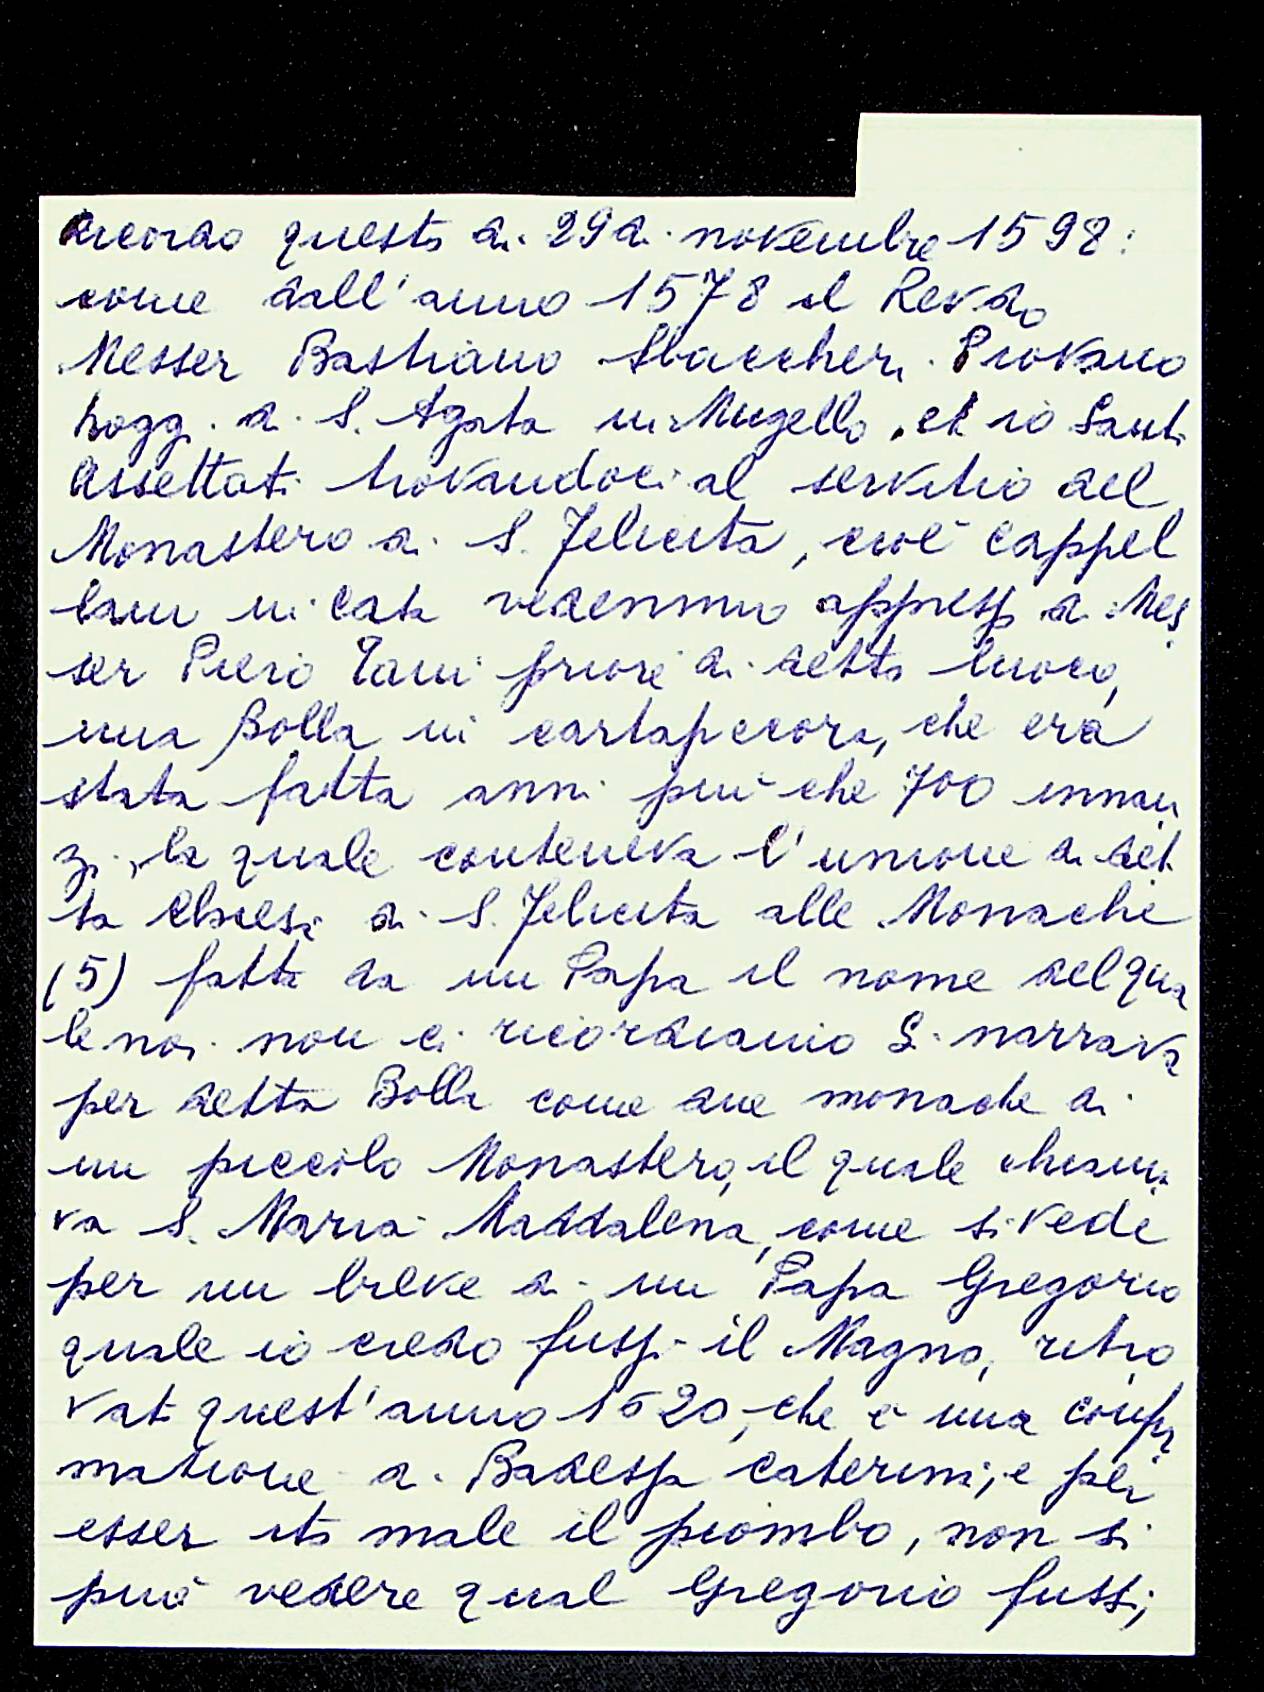 Ricordo questo di 29 di novembre 1598:
come dall'anno 1578 il Revdo
Messer Bastiano Sbaccheri Piovano
hogg. a S. Agata in Mugello, et io Santi
Assettati trovandoci al servitio del
Monastero di S. Felicita, cioè cappel
lani in Cata vedemmo appresso di Mes
ser Piero Tani priore di detto luoco,
una Bolla in cartapecora, che era
stata fatta anni più che 700 innan
zi, la quale conteneva l'unione di det
ta Chiesa di S. Felicita alle Monache
(5) fatta da un Papa il nome del qua
le noi non ci ricordiamo Si narrava
per detta Bolla come due monache di
un piccolo Monastero, il quale chiama
va S. Maria Maddalena, come si vede
per un breve di un Papa Gregorio
quale io credo fussi il Magno, ritro
vati quest'anno 1620, che è una confir
matione di Badessa Caterina; e per
esser ito male il piombo, non si
può vedere qual Gregorio fussi;